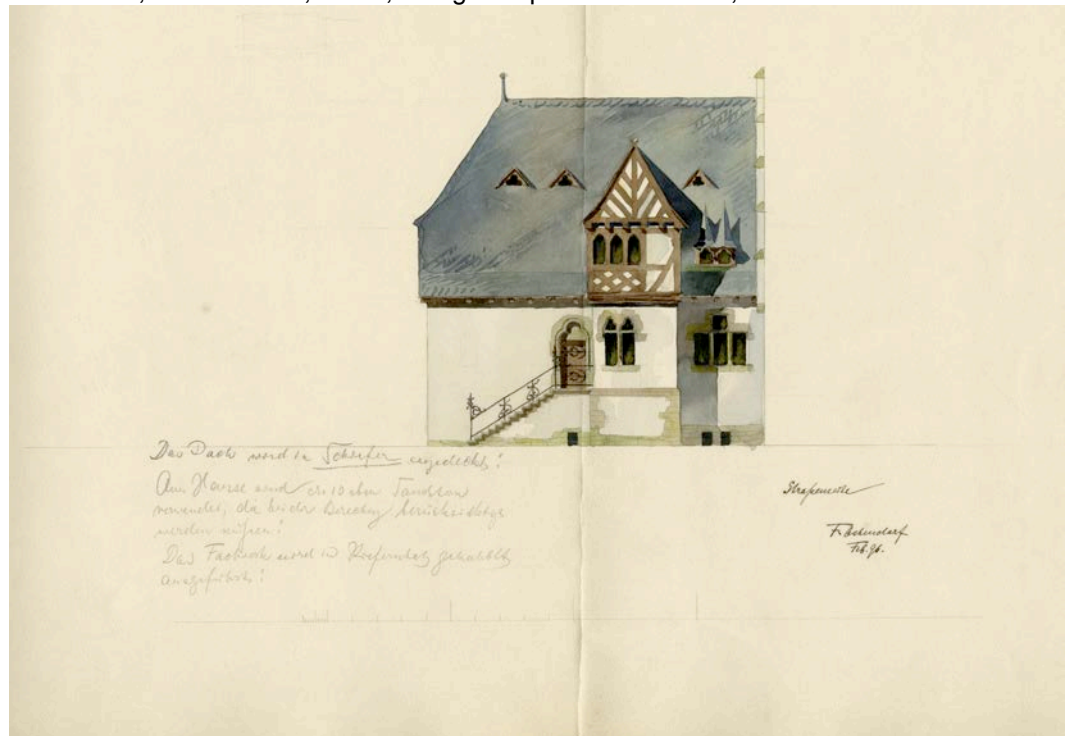 Das Dach wird in Schiefer eingedeckt!
Am Hause sind 10 cbm Sandstein
verwendet, die bei der berücksichtigt
werden müssen!
Das Fachwerk wird in Kiefernholz gehobelt
ausgeführt!
Straßenseite
Feb. 96.